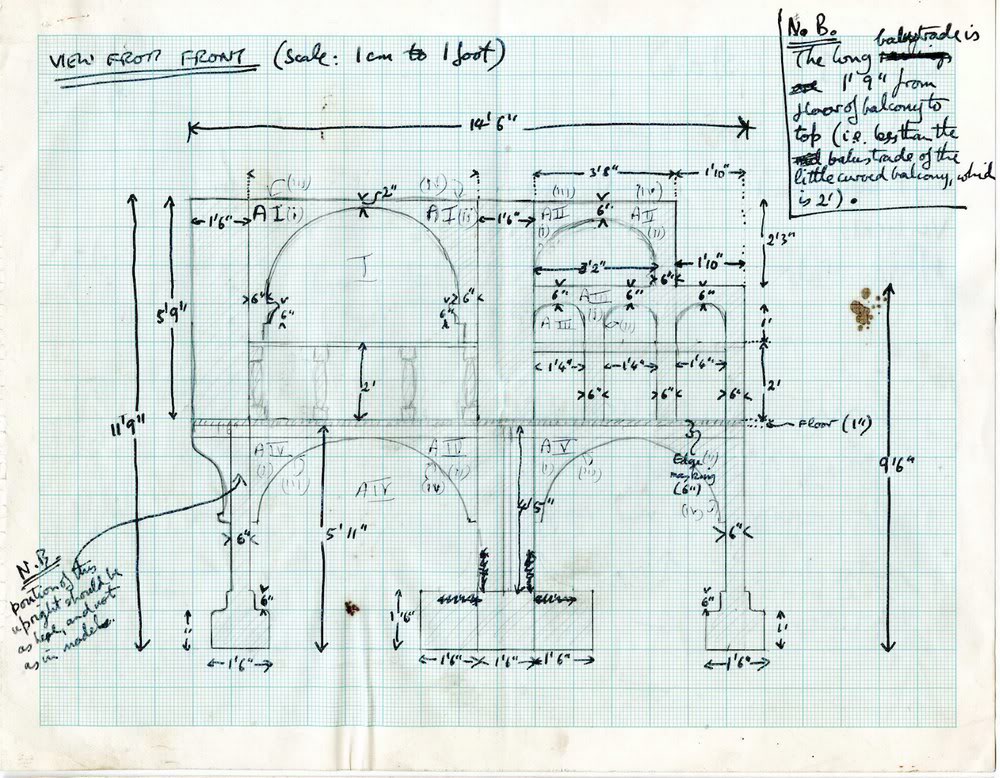 VIEW FROM FRONT (Scale: 1 cm to 1 foot)
N.B.
The long balustrade is
1' 9" from
floor of balcony to
top (i.e. less than the
balustrade of the
little curved balcony, which
is 2').
14' 6"
3'8"
1'10"
(iii)
(iv)
2"
(iii)
(iv)
1'6"
A I (i)
A I (ii)
1'6"
A II
(i)
6"
A II
(ii)
2'3"
I
3'2"
1'10"
6"
5' 9"
6"
6"
6"
6"
6"
A III
(i)
6"
6"
A III
(ii)
1'
2'
1'4"
1'4"
1'4"
2'
6"
6"
6"
11' 9"
Floor (1")
A IV
(i)
(iii)
A IV
(ii)
(iv)
A IV
A V
(i)
(iii)
Edge
masking
(6")
(ii)
(iv)
9' 6"
4' 5"
5' 11"
6"
6"
N.B.
Position of this
upright should be
as here, and not
as in model.
6"
6"
1'
1'6"
1'
1'6"
1'6"
1'6"
1'6"
1'6"